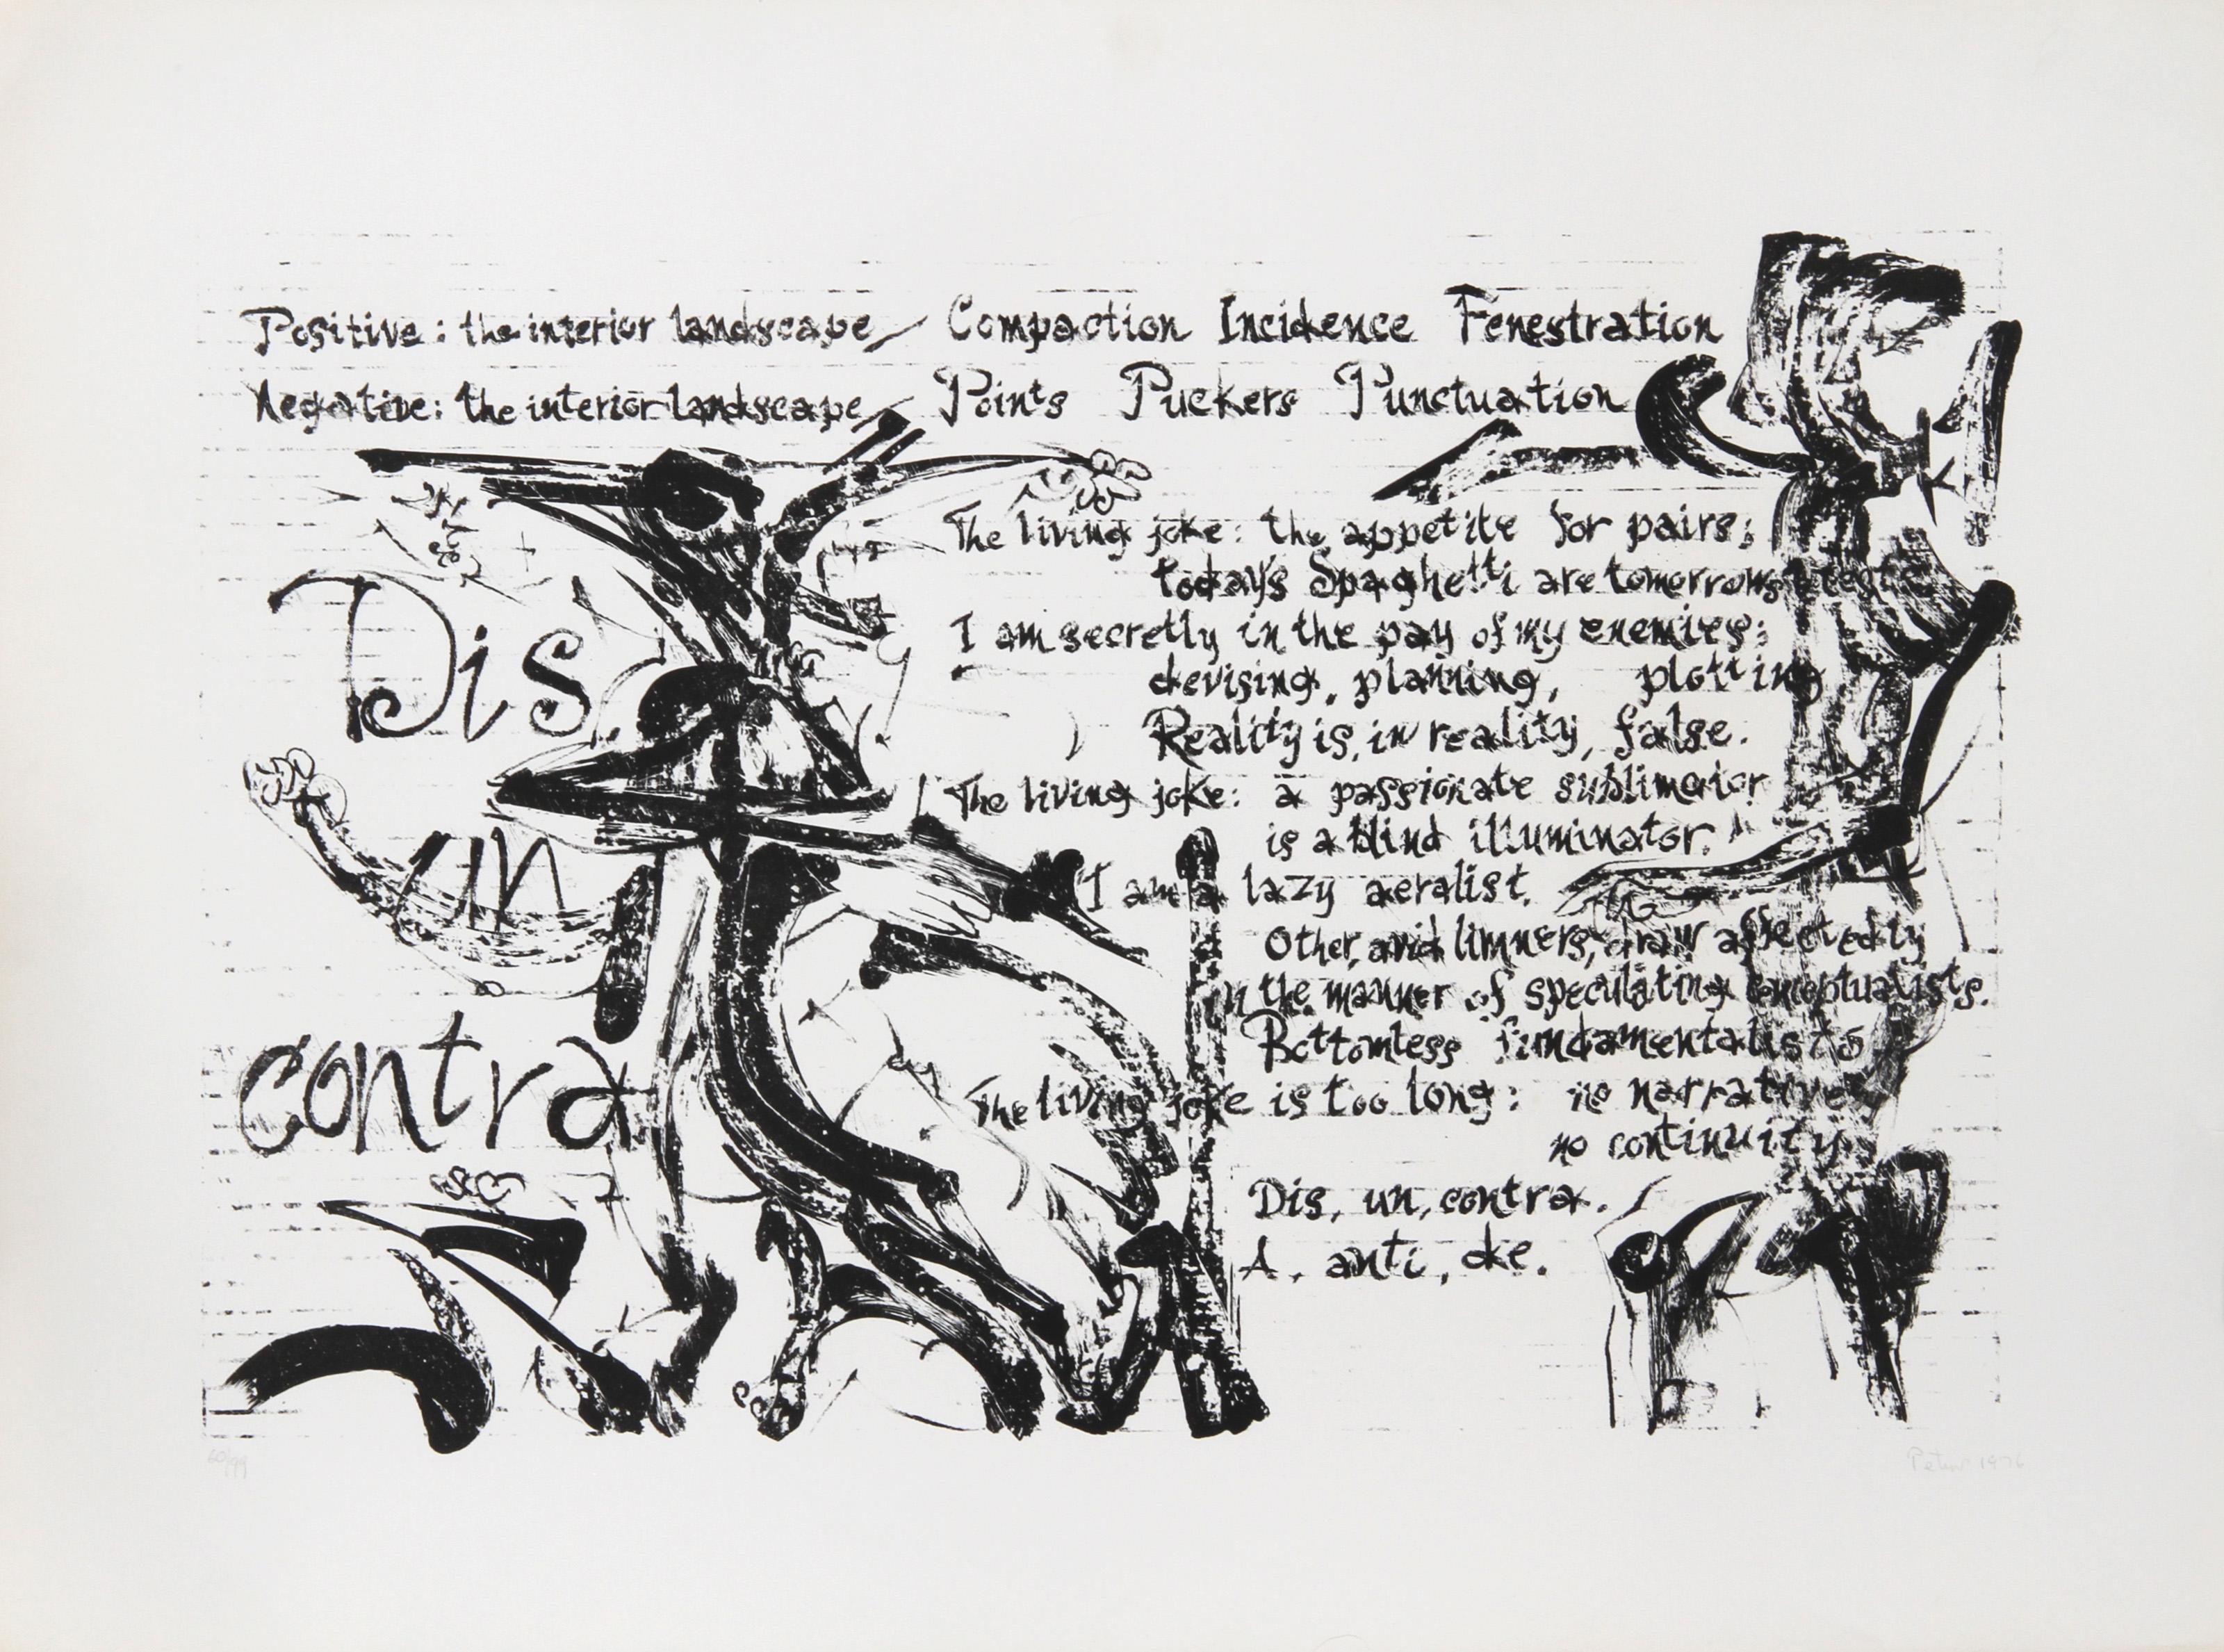 Positive: the interior landscape Compaction Incidence Fenestration
Negative: the interior landscape Points Puckers Punctuation
Dis.
un
contra
The living joke: the appetite for pairs;
today's Spaghetti are tomorrows
I am secretly in the pay of my enemies;
devising, planning, plotting
Reality is, in reality, false.
The living joke: a passionate sublimator
is a blind illuminator.
I am a lazy aeralist.
Other, avid limners, draw affectedly
in the manner of speculating conceptualists.
Bottomless fundamentalists
The living joke is too long: no narrative
no continuity
Dis, un, contra.
A, anti, de.
60/99
Peter 1976